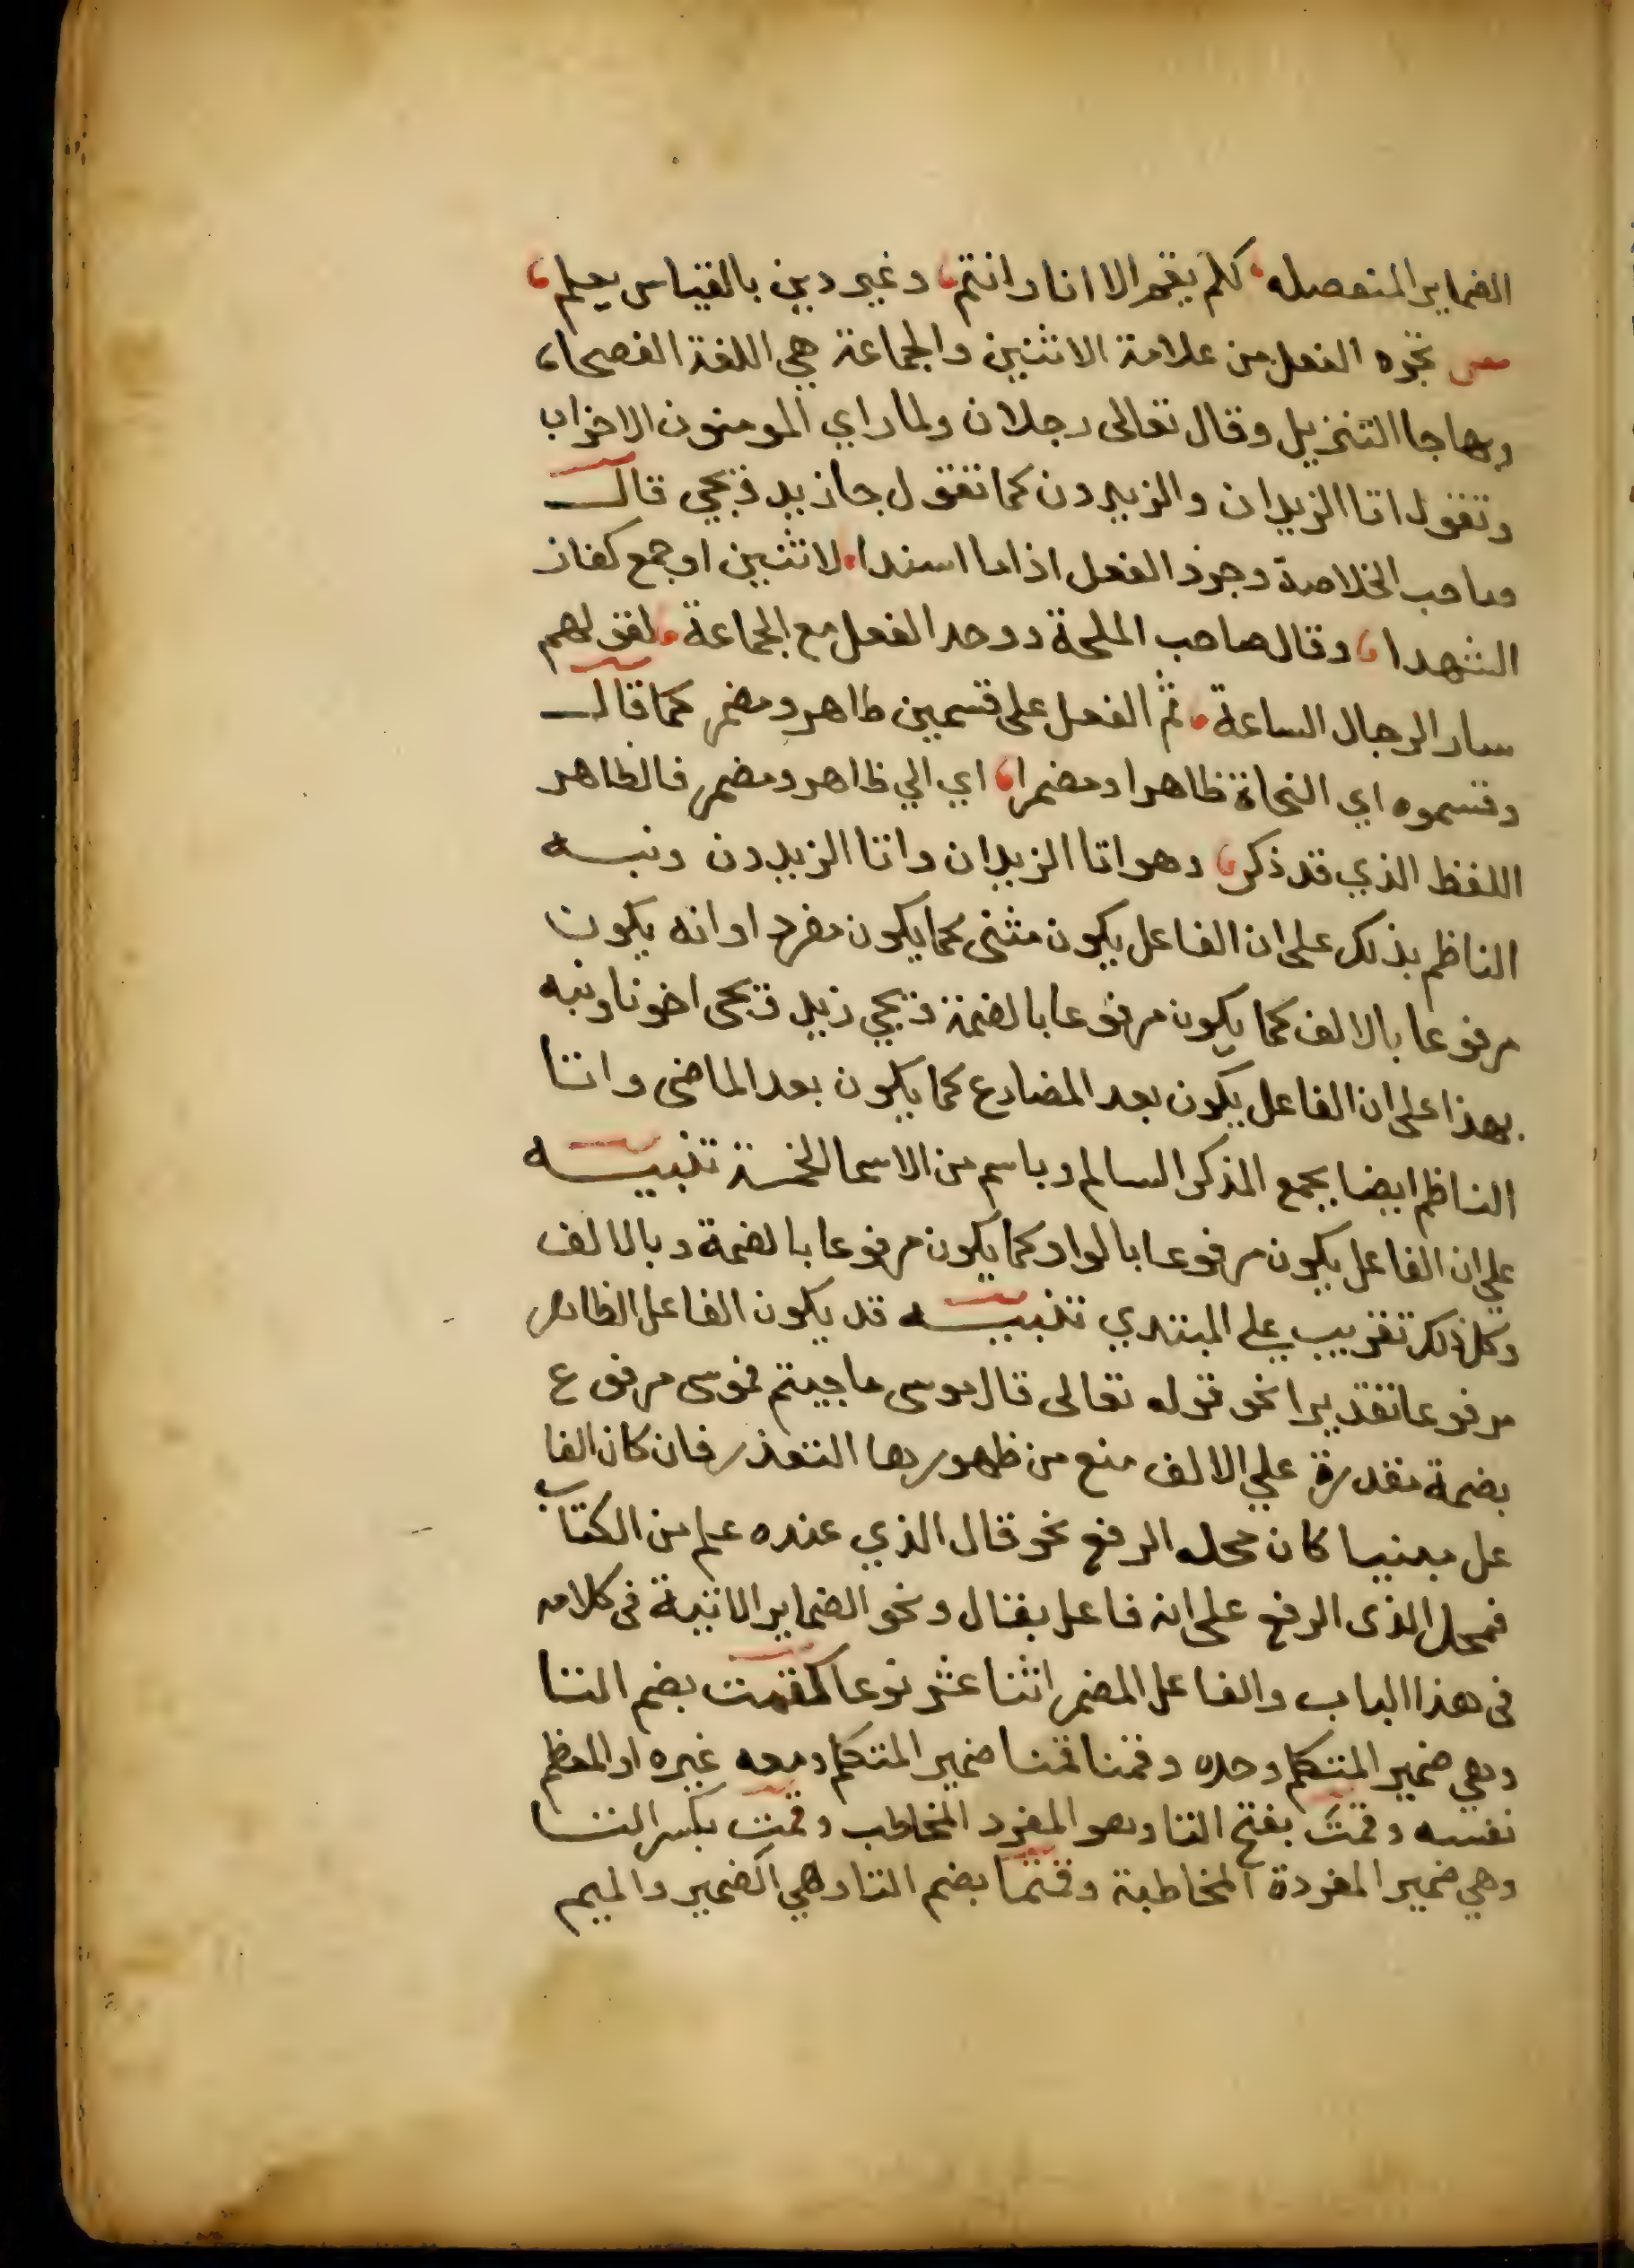 الضماير المنفصله كلم يقم الا انا وانتم وغير ذين بالقياس يعلم
تجرد الفعل من علامة الاثنين والجماعة هي اللغة الفصحا
وبها جا التنزيل وقال تعالى رجلان ولما راي المومنون الاحزاب
وتقول اتا الزيدان والزيدون كما تقول جا زيد ويجي قال
صاحب الخلاصة وجرد الفعل اذا ما اسندا لاثنين او جمع كفاز
الشهدا وقال صاحب الملحة ووحد الفعل مع الجماعة لقولهم
سار الرجال الساعة ثم الفعل على قسمين ظاهر ومضمر كما قال
وقسموه اي النحاة ظاهرا ومضمرا اي الي ظاهر ومضمر فالظاهر
اللفظ الذي قد ذكر وهو اتا الزيدان واتا الزيدون ونبه
الناظم بذلك على ان الفاعل يكون مثنى كما يكون مفردا وانه يكون
مرفوعا بالالف كما يكون مرفوعا بالضمة ويجي زيد ويجى اخونا ونبه
بهذا على ان الفاعل يكون بعد المضارع كما يكون بعد الماضى واتا
الناظم ايضا بجمع المذكر السالم وباسم من الاسما الخمسة تنبيه
علي ان الفاعل يكون مرفوعا بالواو كما يكون مرفوعا بالضمة وبالالف
وكل ذلك تقريب علي المبتدي تنبيه قد يكون الفاعل الظاهر
مرفوعا تقديرا نحو قوله تعالى قال موسى ما جيتم فموسى مرفوع
بضمة مقدرة علي الالف منع من ظهورها التعذر فان كان الفا
عل مبنيا كان محله الرفع نحو قال الذي عنده علم من الكتاب
فمحل الذى الرفع على انه فاعل بقال ونحو الضماير الاتية فى كلامه
فى هذا الباب والفاعل المضمر اثنا عشر نوعا كقمت بضم التا
وهي ضمير المتكلم وحده وقمنا قمنا ضمير المتكلم ومعه غيره او المعظم
نفسه وقمتَ بفتح التا وهو المفرد المخاطب وقمت بكسر التا
وهي ضمير المفردة المخاطبة وقمتما بضم التا وهي الضمير والميم